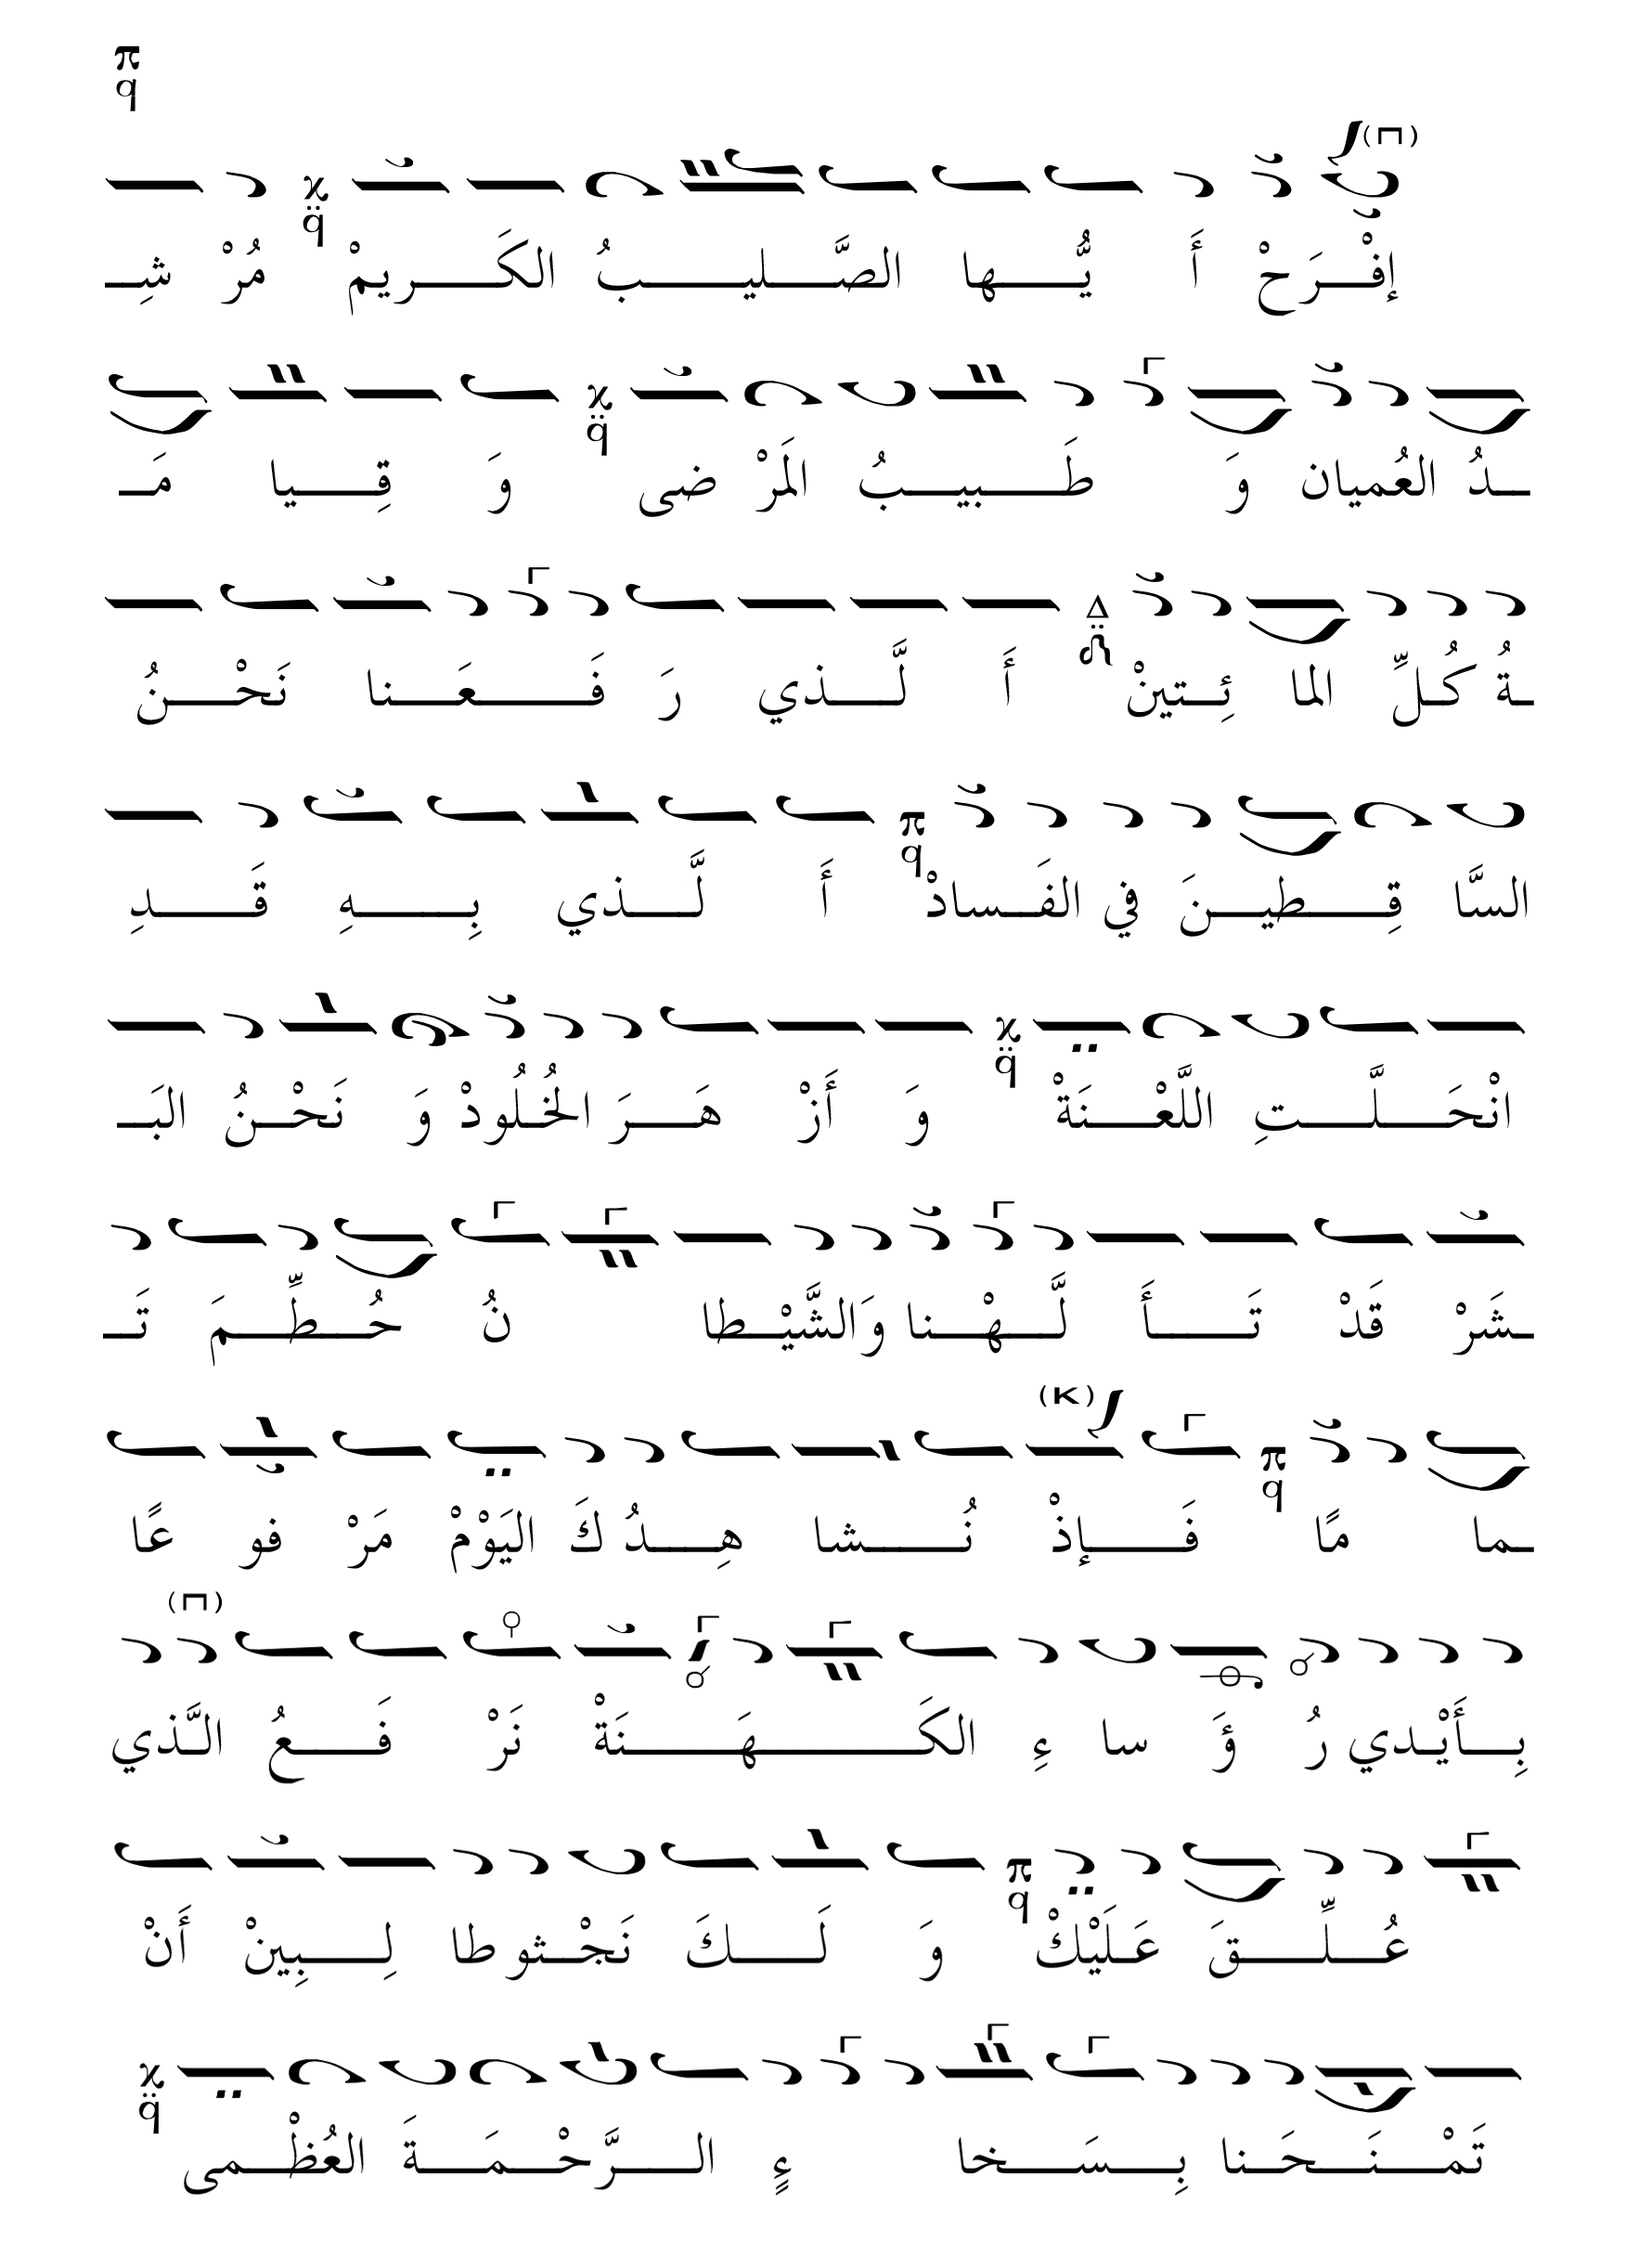 π
q
(Π)
إفْـــرَحْ أَ يُّـــها الصَّـــليـــبُ الكَـــريمْ مُرْ شِـ
ـدُ العُميان وَ طَـــبيـــبُ المَرْ ضى وَ قِـــيا مَـ
ـةُ كُـلِّ الما ئِـــتينْ أَ لَّـــذي رَ فَـــعَـــنا نَحْـــنُ
السَّا قِـــطيـــنَ في الفَـــسادْ أَ لَّـــذي بِـــهِ قَـــدِ
انْحَـــلَّـــتِ اللَّعْـــنَةْ وَ أَزْ هَـــرَ الخُـلُودْ وَ نَحْـــنُ البَـ
ـشَرْ قَدْ تَـــأَ لَّـــهْـــنا وَالشَّيْـــطا نُ حُـــطِّـــمَ تَـ
(K)
ـما مًا فَـــإذْ نُـــشا هِـــدُ كَ اليَوْمْ مَرْ فو عًا
(Π)
بِـــأَيْـــدي رُ ؤَ سا ءِ الكَـــهَـــنَةْ نَرْ فَـــعُ الـَّذي
عُـــلِّـــقَ عَـلَيْـكْ وَ لَـــكَ نَجْـــثو طا لِـــبِينْ أَنْ
تَمْـــنَـــحَـــنا بِـــسَـــخا ءٍ الـــرَّحْـــمَـــةَ العُـظْـــمى